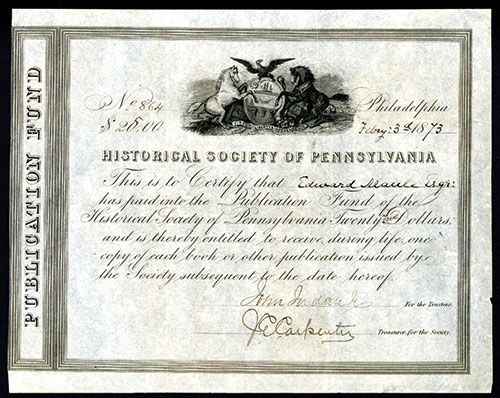 PUBLICATION FUND
No 864
Philadelphia
$25.00
Feby: 3d 1873
HISTORICAL SOCIETY OF PENNSYLVANIA
This is to Certify that Edward Maule Esqr:
has paid into the Publication Fund of the
Historical Society of Pennsylvania Twenty five Dollars,
and is thereby entitled to receive, during life, one
copy of each book or other publication issued by
the Society subsequent to the date hereof.
John Jordan Jr
For the Trustees.
J E Carpenter
Treasurer, for the Society.